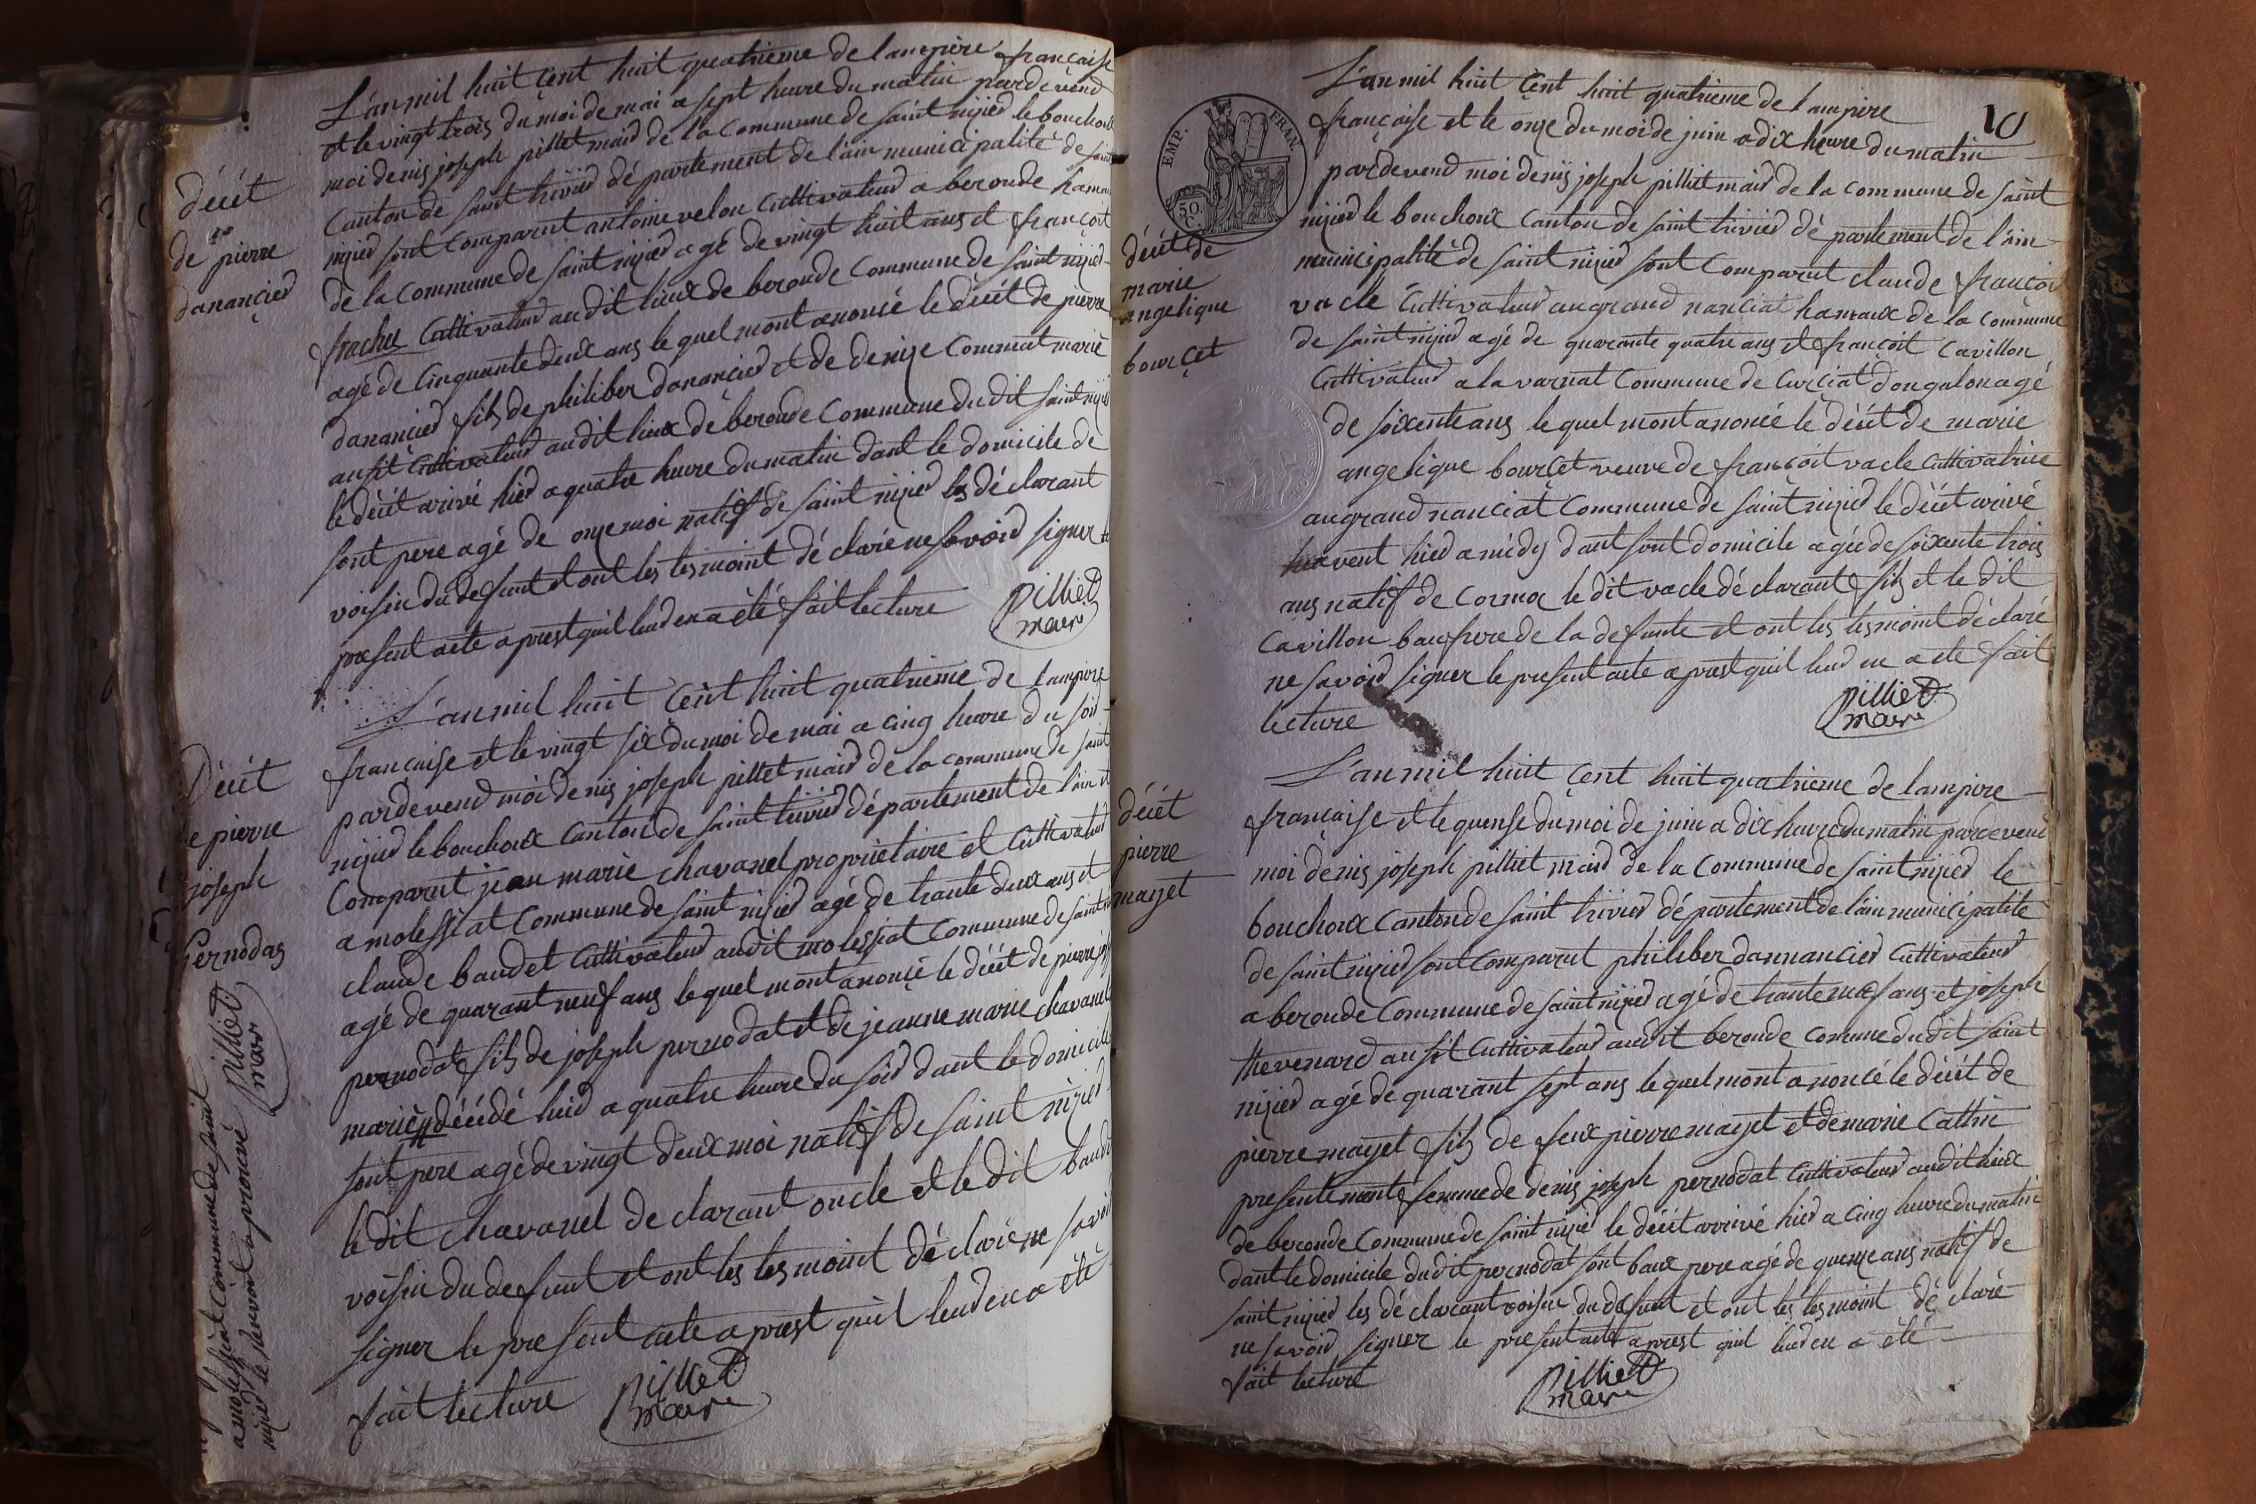 L'an mil huit cent huit quatrieme de l'ampire française
et le vingt trois du moi de mai a sept heure du matin pardevend
moi denis joseph pilliet maid de la commune de saint nizied le bouchoux
Canton de saint trivied dé partement de l'ain municipalité de saint
nizied sont comparut antoine velon Cultivateud a beronde hamau
de la commune de saint nizied agé de vingt huit ans et françoit
frachet Cultivateud au dit lieux de beronde commune de saint nizied
agé de Cinquante deux ans le quel m'ont anoncé le décét de pierre
danancied fils de philiber danancied et de denize Commat marié
au sit Cultivateud au dit lieux de beronde commune du dit saint nizied
le décét arivé hied a quatre heure du matin dant le domicile de
sont pere agé de onze moi natif de saint nizied les déclarant
voisin du defunt et ont les tesmoint déclaré ne savoid signer le
present acte aprest quil leud en a été fait lecture
Pilliet
maire
décét
de pierre
danancied
L'an mil huit cent huit quatrieme de l'ampire
française et le vingt six du moi de mai a cinq heure du soir
pardevend moi denis joseph pilliet maid de la commune de saint
nizied le bouchoux Canton de saint trivied département de l'ain et
Comparut jean marie chavanel proprietaire et Cultivateud
a molissiat Commune de saint nizied agé de trante deux ans et
claude baudet Cultivateud audit molessiat Commune de saint
agé de quarant neuf ans le quel mont anoncé le décét de pierre
pernodat fils de joseph pernodat et de jeanne marie chavanel
marié décédé hied a quatre heure du soid dant le domicile
sont pere agé de vingt deux moi natif de saint nizied
le dit chavanel declarant oncle et le dit baudet
voisin du defunt et ont les tesmoint déclaré ne savoid
signer le present acte aprest quil leud en a été
fait lecture
Pilliet
maire
Décét
de pierre
joseph
Pernodas
a molessiat Commune de saint
nizied le servoit aprouvé
Pilliet
mair
10
EMP. FRAN.
50
L'an mil huit cent huit quatrieme de l'ampire
française et le onze du moi de juin a dix heure du matin
pardevend moi denis joseph pilliet maid de la commune de saint
nizied le bouchoux Canton de saint trivied dé partement de l'ain
municipalité de saint nizied sont comparut claude françoi
vacle Cultivateud au grand nanciat hamaux de la commune
de saint nizied agé de quarante quatre ans et françoit Cavillon
Cultivateud a la varnat Commune de Curciat dongalon agé
de soixente ans le quel mont anoncé le décét de marie
angelique bourcet veuve de françoit vacle Cultivatrice
au grand nanciat Commune de saint nizied le décét arivé
avent hied a midy dant sont domicile agée de soixente trois
ans natif de Cormoz le dit vacle déclarant fils et le dit
Cavillon baufrere de la defunte et ont les tesmoint déclaré
ne savoid signer le present acte aprest quil leud en a ete fait
lecture
Pilliet
maire
décét de
marie
angelique
bourcet
L'an mil huit cent huit quatrieme de l'ampire
française et le quense du moi de juin a dix heure du matin pardevend
moi denis joseph pilliet maid de la Commune de saint nizied le
bouchoux Canton de saint trivied département de l'ain municipalité
de saint nizied sont comparut philiber dannancied Cultivateud
a beronde Commune de saint nizied agé de trante neuf ans et joseph
thevenard au sit Cultivateud audit beronde comune du dit saint
nizied agé de quarant sept ans le quel mont anoncé le décét de
pierre mazet fils de feux pierre mazet et de marie Cattin
presentement femme de denis joseph pernodat Cultivateud audit lieux
de beronde Commune de saint nizied le décét arrivé hied a cinq heure du matin
dant le domicile dudit pernodat sont baux pere agé de quenze ans natif de
saint nizied les déclarant voisin du defunt et ont les tesmoint déclaré
ne savoid signer le present acte aprest quil leud en a été
fait lecture
Pilliet
maire
décét
pierre
mazet